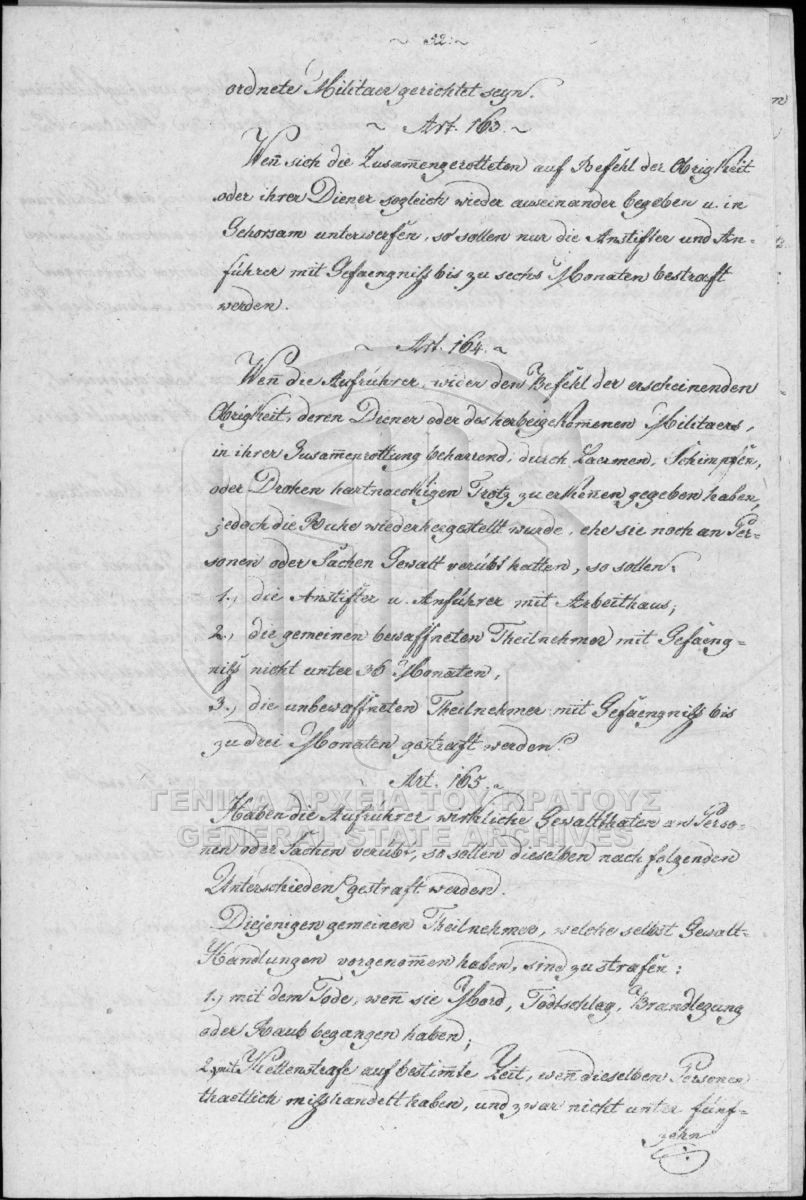 ~ 42. ~
ordnete Militaer gerichtet seyn.
~ Art. 163. ~
Wen̄ sich die Zusammengerotteten auf Befehl der Obrigkeit
oder ihrer Diener sogleich wieder auseinander begeben u. in
Gehorsam unterwerfen, so sollen nur die Anstifter und An-
führer mit Gefaengniß bis zu sechs Monaten bestraft
werden.
~ Art. 164. ~
Wen̄ die Aufrührer, wider den Befehl der erscheinenden
Obrigkeit, deren Diener oder des herbeigekom̄enen Militaers,
in ihrer Zusammenrottung beharrend, durch Laermen, Schimpfen,
oder Drohen hartnaeckigen Trotz zu erken̄en gegeben haben,
jedoch die Ruhe wiederhergestellt wurde, ehe sie noch an Per-
sonen oder Sachen Gewalt verübt hatten, so sollen:
1., die Anstifter u. Anführer mit Arbeithaus;
2., die gemeinen bewaffneten Theilnehmer mit Gefaeng-
niß nicht unter 36 Monaten,
3., die unbewaffneten Theilnehmer mit Gefaengniß bis
zu drei Monaten gestraft werden.
Art. 165. ~
ΓΕΝΙΚΑ ΑΡΧΕΙΑ ΤΟΥ ΚΡΑΤΟΥΣ
Haben die Aufrührer wirkliche Gewaltthaten an Perso-
GENERAL STATE ARCHIVES
nen oder Sachen verübt, so sollen dieselben nach folgenden
Unterschieden gestraft werden.
Diejenigen gemeinen Theilnehmer, welche selbst Gewalt-
Handlungen vorgenommen haben, sind zu strafen:
1., mit dem Tode, wen̄ sie Mord, Todtschlag, Brandlegung
oder Raub begangen haben;
2., mit Kettenstrafe auf bestim̄te Zeit, wen̄ dieselben Personen
thaetlich mißhandelt haben, und zwar nicht unter fünf-
zehn